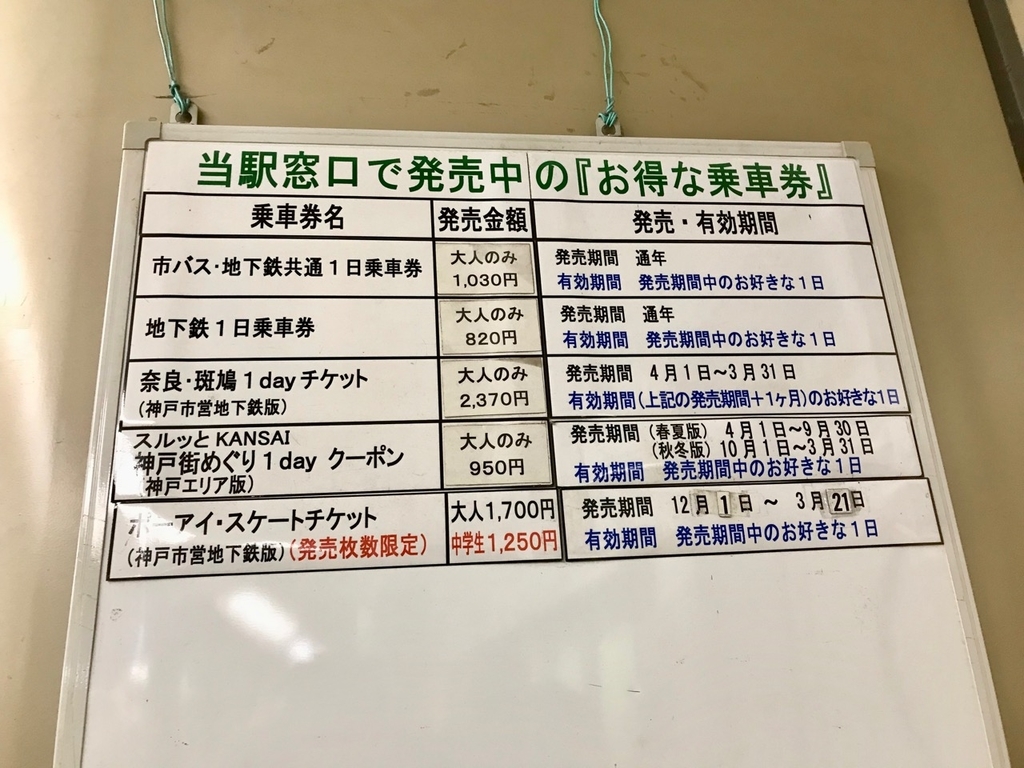 当駅窓口で発売中の『お得な乗車券』
乗車券名 発売金額 発売・有効期間
市バス・地下鉄共通1日乗車券
大人のみ
1,030円
発売期間 通年
有効期間 発売期間中のお好きな1日
地下鉄1日乗車券
大人のみ
820円
発売期間 通年
有効期間 発売期間中のお好きな1日
奈良・斑鳩1dayチケット
(神戸市営地下鉄版)
大人のみ
2,370円
発売期間 4月1日～3月31日
有効期間(上記の発売期間＋1ヶ月)のお好きな1日
スルッとKANSAI
神戸街めぐり1day クーポン
(神戸エリア版)
大人のみ
950円
発売期間 (春夏版) 4月1日～9月30日
(秋冬版) 10月1日～3月31日
有効期間 発売期間中のお好きな1日
ポーアイ・スケートチケット
(神戸市営地下鉄版)(発売枚数限定)
大人1,700円
中学生1,250円
発売期間 12月1日 ～ 3月21日
有効期間 発売期間中のお好きな1日